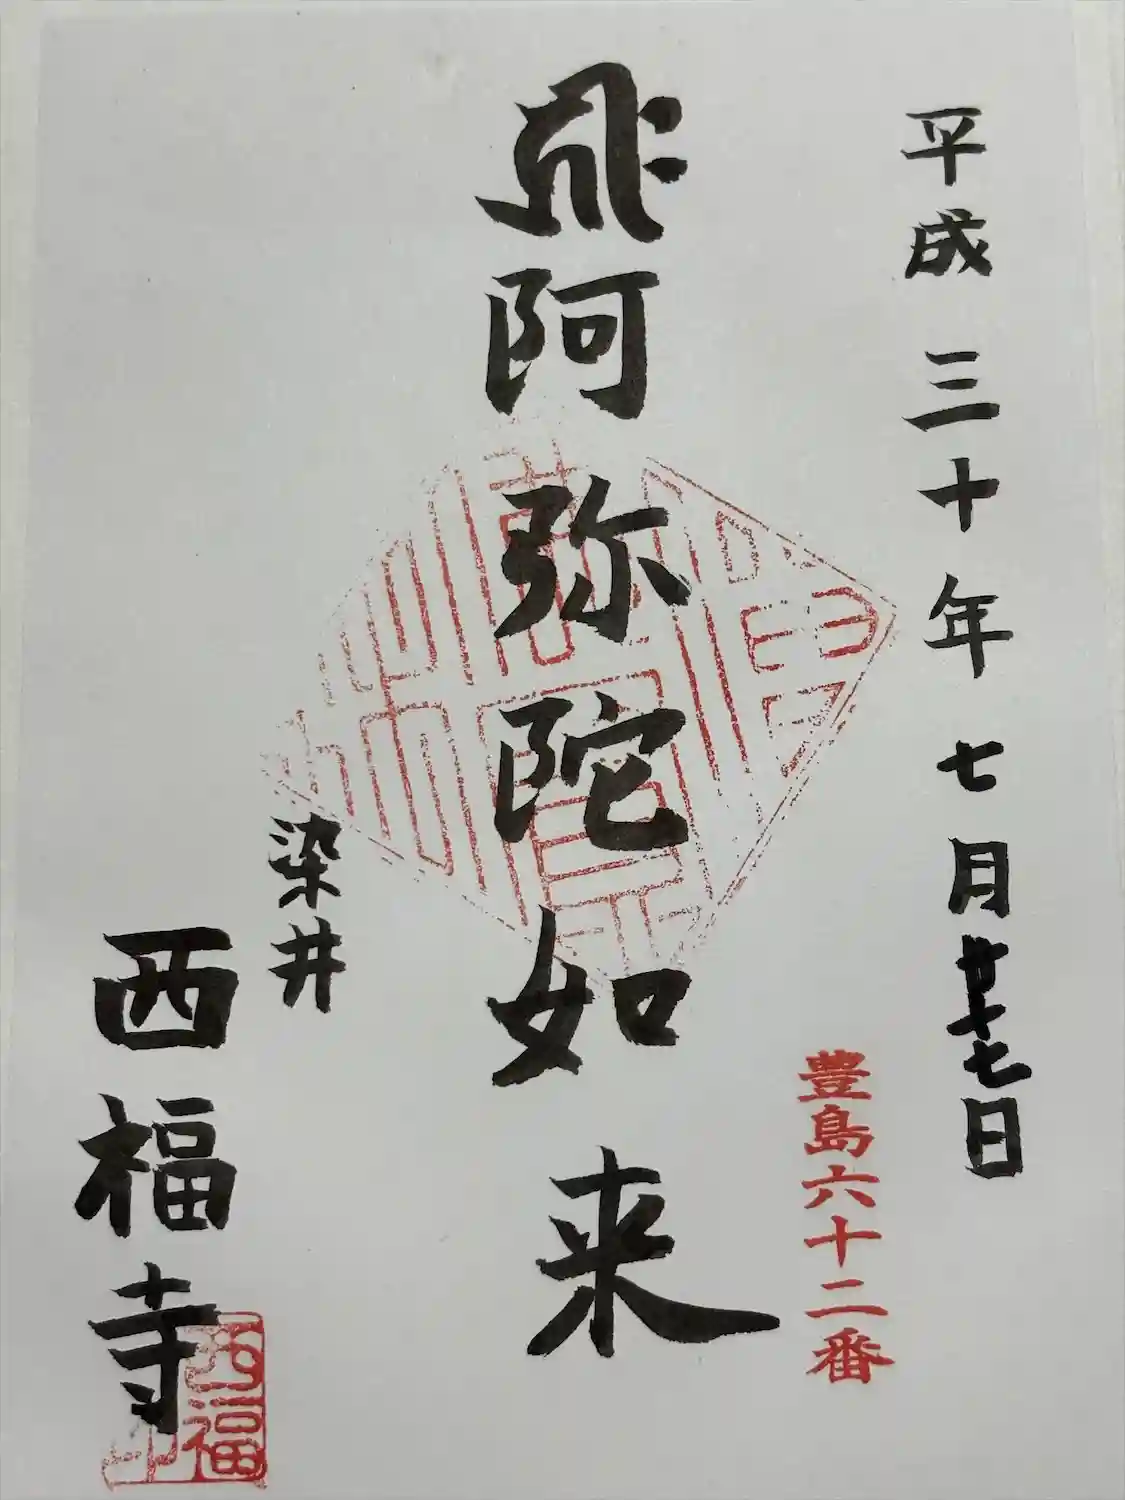 平成三十年七月廿七日
豊島六十二番
阿弥陀如来
染井
西福寺
西福
印